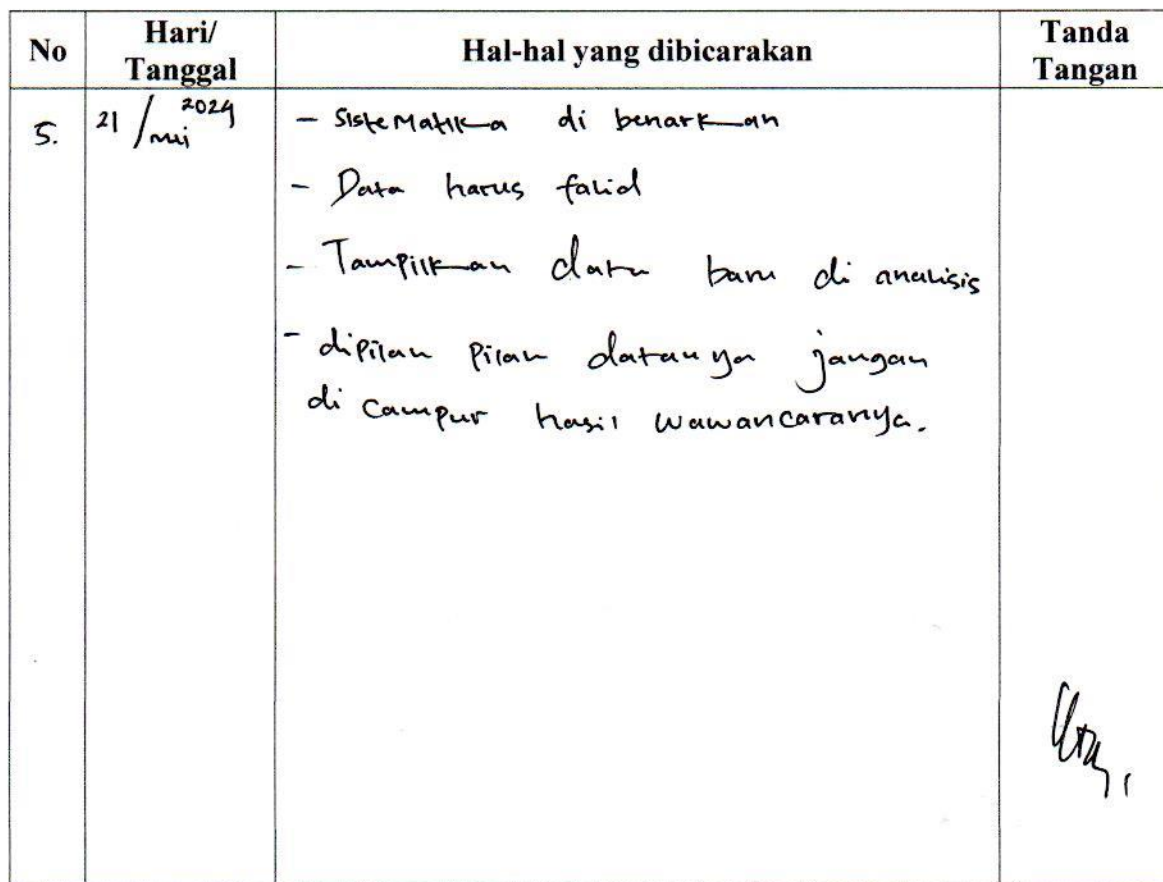 No
Hari/
Tanggal
Hal-hal yang dibicarakan
Tanda
Tangan
5.
21 / mei 2024
- Sistematika di benarkan
- Data harus falid
- Tampilkan data baru di analisis
- dipilah pilah datanya jangan
di campur hasil wawancaranya.